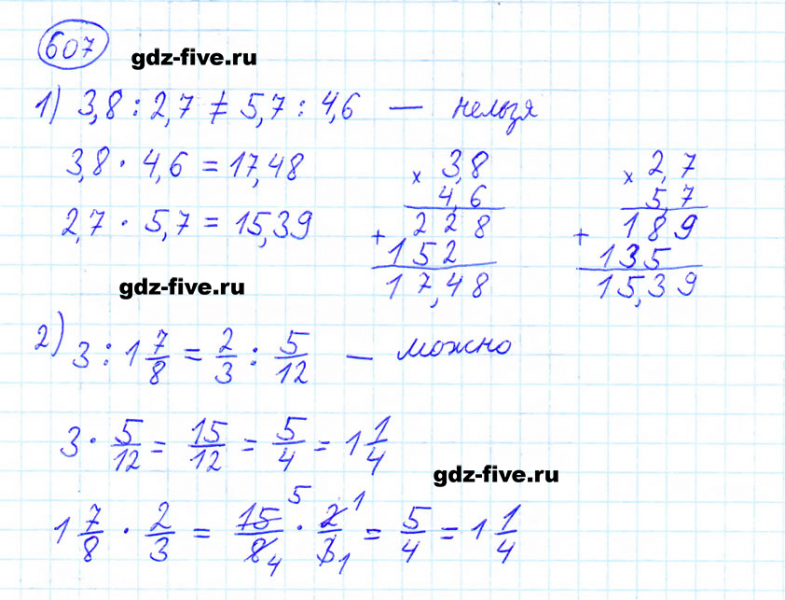 607
gdz-five.ru
1) 3,8 : 2,7 ≠ 5,7 : 4,6 — нельзя
3,8 · 4,6 = 17,48
2,7 · 5,7 = 15,39
× 3,8
4,6
+ 2 2 8
1 5 2
1 7,4 8
× 2,7
5,7
+ 1 8 9
1 3 5
1 5,3 9
gdz-five.ru
2) 3 : 1 7/8 = 2/3 : 5/12 — можно
3 · 5/12 = 15/12 = 5/4 = 1 1/4
gdz-five.ru
1 7/8 · 2/3 = 15 5/8 4 · 2 1/3 1 = 5/4 = 1 1/4